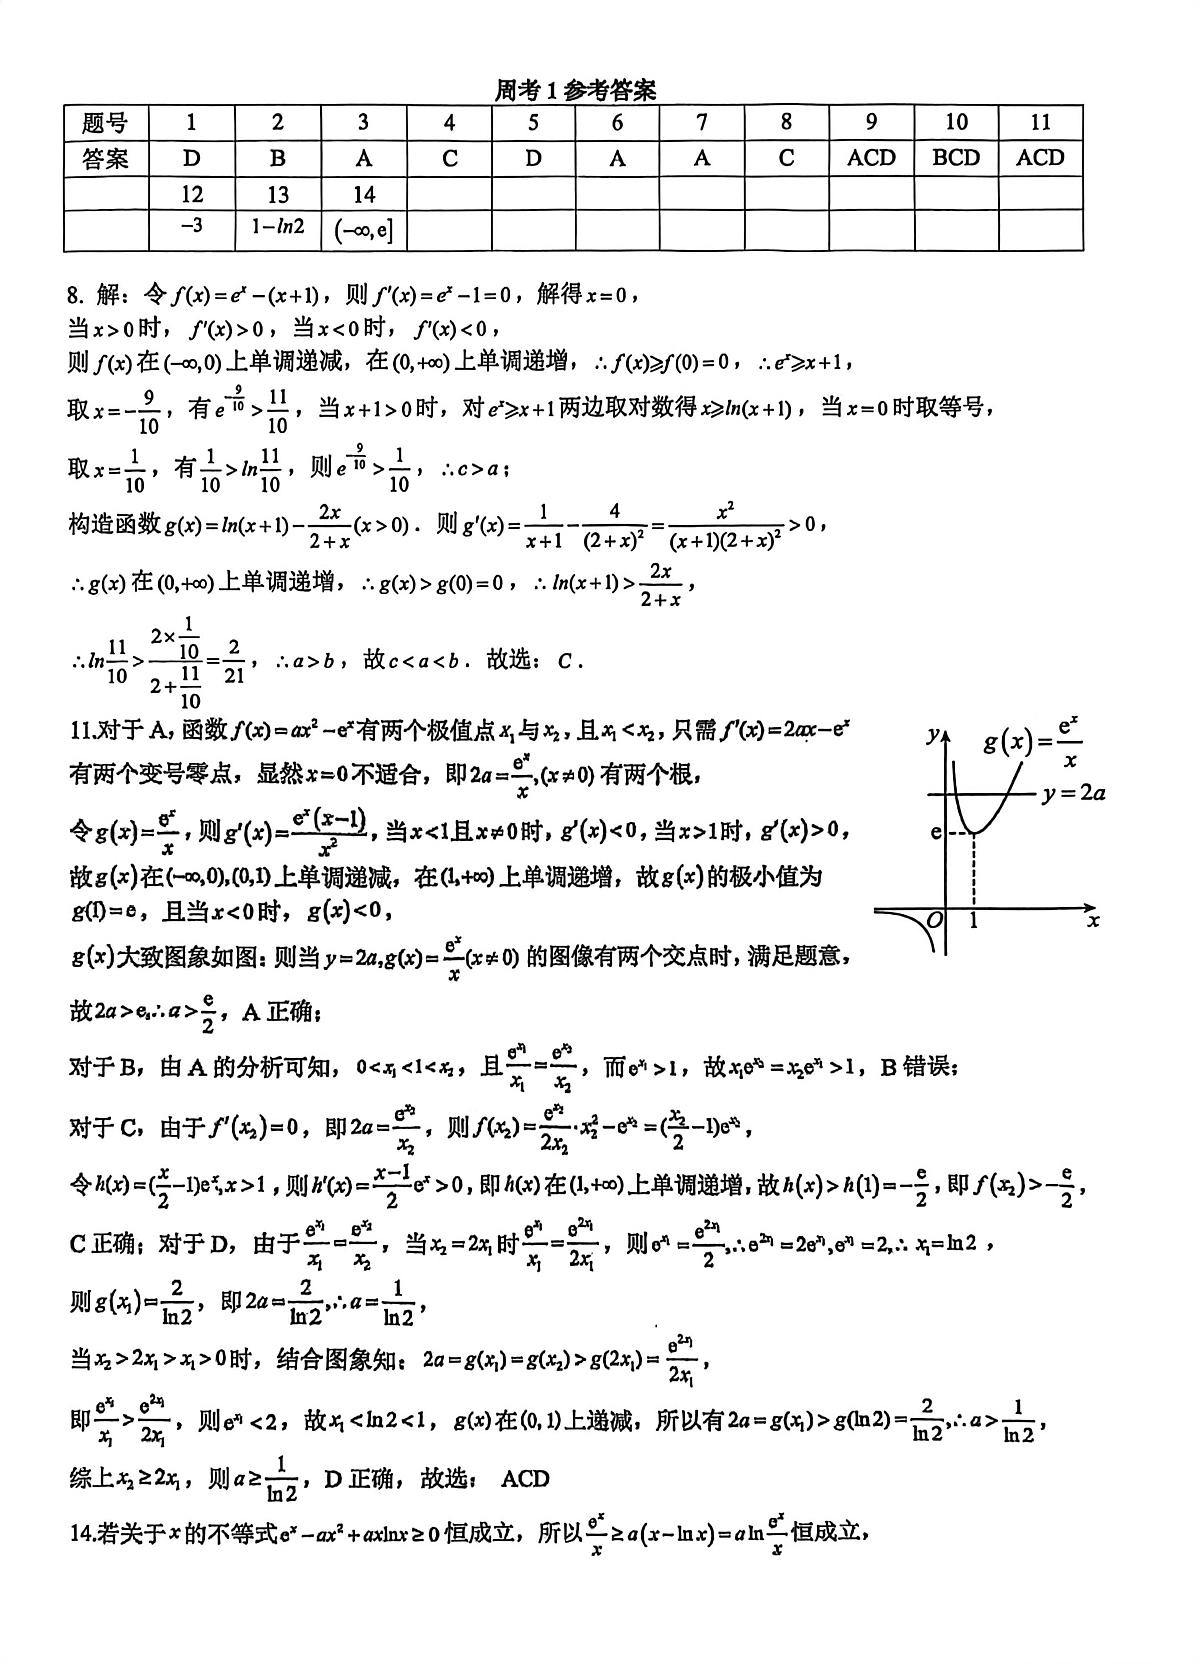 周考1参考答案
题号 1 2 3 4 5 6 7 8 9 10 11
答案 D B A C D A A C ACD BCD ACD
12 13 14
-3 1-ln2 (-∞,e]
8. 解：令f(x)=e^x-(x+1)，则f′(x)=e^x-1=0，解得x=0，
当x>0时，f′(x)>0，当x<0时，f′(x)<0，
则f(x)在(-∞,0)上单调递减，在(0,+∞)上单调递增，∴f(x)⩾f(0)=0，∴e^x⩾x+1，
取x=-9/10，有e^(-9/10)>11/10，当x+1>0时，对e^x⩾x+1两边取对数得x⩾ln(x+1)，当x=0时取等号，
取x=1/10，有1/10>ln11/10，则e^(-9/10)>1/10，∴c>a；
构造函数g(x)=ln(x+1)-2x/(2+x)(x>0)．则g′(x)=1/(x+1)-4/(2+x)²=x²/((x+1)(2+x)²)>0，
∴g(x)在(0,+∞)上单调递增，∴g(x)>g(0)=0，∴ln(x+1)>2x/(2+x)，
∴ln11/10>(2×1/10)/(2+11/10)=2/21，∴a>b，故c<a<b．故选：C．
11.对于A，函数f(x)=ax²-e^x有两个极值点x₁与x₂，且x₁<x₂，只需f′(x)=2ax-e^x
有两个变号零点，显然x=0不适合，即2a=e^x/x,(x≠0)有两个根，
令g(x)=e^x/x，则g′(x)=e^x(x-1)/x²，当x<1且x≠0时，g′(x)<0，当x>1时，g′(x)>0，
故g(x)在(-∞,0),(0,1)上单调递减，在(1,+∞)上单调递增，故g(x)的极小值为
g(1)=e，且当x<0时，g(x)<0，
g(x)大致图象如图：则当y=2a,g(x)=e^x/x(x≠0)的图像有两个交点时，满足题意，
故2a>e,∴a>e/2，A正确；
y
g(x)=e^x/x
y=2a
e
O 1 x
对于B，由A的分析可知，0<x₁<1<x₂，且e^x₁/x₁=e^x₂/x₂，而e^x₁>1，故x₁e^x₂=x₂e^x₁>1，B错误；
对于C，由于f′(x₂)=0，即2a=e^x₂/x₂，则f(x₂)=e^x₂/2x₂·x₂²-e^x₂=(x₂/2-1)e^x₂，
令h(x)=(x/2-1)e^x,x>1，则h′(x)=(x-1)/2 e^x>0，即h(x)在(1,+∞)上单调递增，故h(x)>h(1)=-e/2，即f(x₂)>-e/2，
C正确；对于D，由于e^x₁/x₁=e^x₂/x₂，当x₂=2x₁时e^x₁/x₁=e^2x₁/2x₁，则e^x₁=e^2x₁/2,∴e^2x₁=2e^x₁,e^x₁=2,∴x₁=ln2，
则g(x₁)=2/ln2，即2a=2/ln2,∴a=1/ln2，
当x₂>2x₁>x₁>0时，结合图象知：2a=g(x₁)=g(x₂)>g(2x₁)=e^2x₁/2x₁，
即e^x₁/x₁>e^2x₁/2x₁，则e^x₁<2，故x₁<ln2<1，g(x)在(0,1)上递减，所以有2a=g(x₁)>g(ln2)=2/ln2,∴a>1/ln2，
综上x₂≥2x₁，则a≥1/ln2，D正确，故选：ACD
14.若关于x的不等式e^x-ax²+axlnx≥0恒成立，所以e^x/x≥a(x-lnx)=aln e^x/x恒成立，